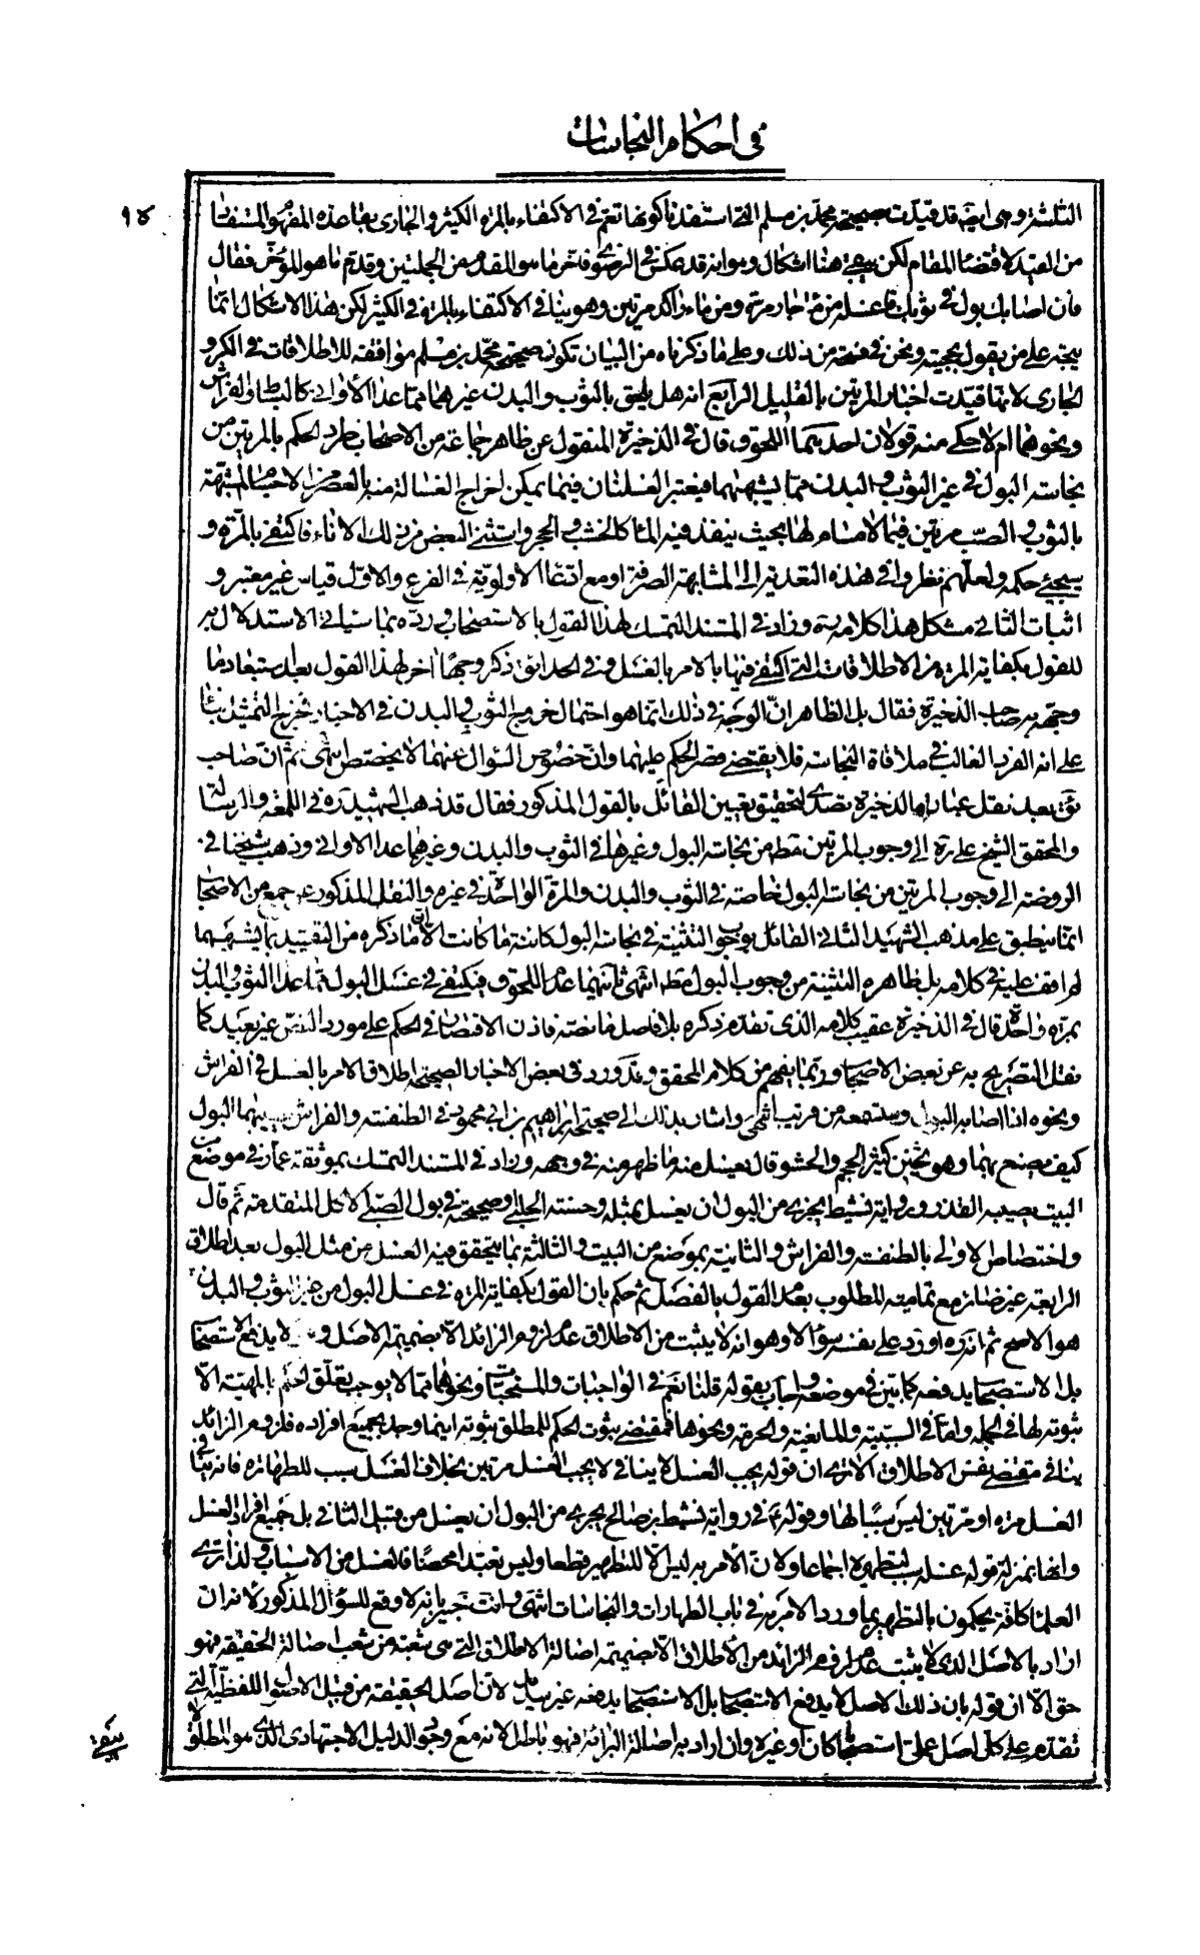 في احكام النجاسات
٩٤
الثلثة وهي ايضا قد قيدت صحيحة محمد بن مسلم التي استفدنا كونها نعم في الاكتفاء بالمرة الكثير والجاري بقاعدة المفهوم المستفاد
من القيد لاقتضاء المقام لكن يتجه هنا اشكال وهو انه قد عكس في الرضوي فاخر ما هو المقدم من الجملتين وقدم ما هو المؤخر فقال
فان اصابك بول في ثوبك فاغسله من ماء جار مرة ومن ماء راكد مرتين وهو ينافي الاكتفاء بالمرة في الكثير لكن هذا الاشكال انما
يتجه على من يقول بحجيته ونحن في فسحة من ذلك وعلى ما ذكرناه من البيان تكون صحيحة محمد بن مسلم موافقة للاطلاقات في الكر و
الجاري لانها قيدت اخبار المرتين بالقليل الرابع انه هل يلحق بالثوب والبدن غيرهما مما عدا الاواني كالبساط والفراش
ونحوهما ام لا حكي منه قولان احدهما اللحوق قال في الذخيرة المنقول عن ظاهر جماعة من الاصحاب طرد الحكم بالمرتين من
نجاسة البول في غير الثوب والبدن مما يشبههما فيعتبر الغسلتان فيما يمكن اخراج الغسالة منه بالعصر من الاجسام المشبهة
بالثوب والصب مرتين فيما لا مسام لها بحيث ينفذ فيه الماء كالخشب والحجر واستثنى البعض من ذلك الاناء فاكتفى بالمرة و
سيجئ حكمه ولعلهم نظروا في هذه التعدية الى المشابهة الصرفة او مع ادعاء الاولوية في الفرع والاول قياس غير معتبر و
اثبات الثاني مشكل هذا كلامه ره وزاد في المستند التمسك لهذا القول بالاستصحاب ورده بما سيأتي الاستدلال به
للقول بكفاية المرة من الاطلاقات التي اكتفى فيها بالامر بالغسل وفي الحدائق ذكر وجها اخر لهذا القول بعد استبعاد ما
وجهه به صاحب الذخيرة فقال بل الظاهر ان الوجه في ذلك انما هو احتمال خروج الثوب والبدن في الاخبار مخرج التمثيل بناء
على انه الفرد الغالب في ملاقاة النجاسة فلا يقتضي قصر الحكم عليهما وان خصوص السؤال عنهما لا يخصص انتهى ثم ان صاحب
ئق بعد نقل عبارة الذخيرة تصدى لتحقيق تعيين القائل بالقول المذكور فقال قد ذهب الشهيد ره في اللمعة والرسالة
والمحقق الشيخ علي ره الى وجوب المرتين مط من نجاسة البول وغيرها في الثوب والبدن وغيرهما عدا الاواني وذهب شيخنا في
الروضة الى وجوب المرتين من نجاسة البول خاصة في الثوب والبدن والمرة الواحدة في غيره والنقل المذكور عن جمع من الاصحاب
انما ينطبق على مذهب الشهيد الثاني القائل بوجوب التثنية في نجاسة البول كائنة ما كانت الا ان ما ذكره من التقييد بما يشبههما
لم اقف عليه في كلامه بل ظاهره التثنية من وجوب البول مط انتهى ثانيهما عدم اللحوق فيكتفى في غسل البول مما عدا الثوب والبدن
بمرة واحدة قال في الذخيرة عقيب كلامه الذي تقدم ذكره بلا فاصل ما نصه فاذن الاقتصار في الحكم على مورد النص غير بعيد كما
نقل التصريح به عن بعض الاصحاب وربما يفهم من كلام المحقق وقد ورد في بعض الاخبار الصحيحة اطلاق الامر بالغسل في الفراش
ونحوه اذا اصابه البول وستسمعه من قريب انتهى واشار بذلك الى صحيحة ابراهيم بن ابي محمود في الطنفسة والفراش يصيبهما البول
كيف يصنع بهما وهو ثخين كثير الحجم والحشو قال يغسل منه ما ظهر منه في وجهه وزاد في المستند التمسك بموثقة عمار في موضع من
البيت يصيبه القذر ورواية نشيط يجزي من البول ان يغسل بمثله وحسنة الحلبي وصحيحته في بول الصبي الاكل المتقدمة ثم قال
واختصاص الاولى بالطنفسة والفراش والثانية بموضع من البيت والثالثة بما يتحقق فيه الغسل من مثل البول بعد اطلاق
الرابعة غير ضائر مع تمامية المطلوب بعدم القول بالفصل ثم حكم بان القول بكفاية المرة في غسل البول من غير الثوب والبدن
هو الاصح ثم انه ره اورد على نفسه سؤالا وهو انه لا يثبت من الاطلاق عدم لزوم الزائد الا بضميمة الاصل و لا يدفع الاستصحاب
بل الاستصحاب يدفعه كما بين في موضعه واجاب بقوله قلنا نعم في الواجبات والمستحبات ونحوهما مما لا يوجب تعلق الحكم بالمهية الا
ثبوته لها في الجملة واما في السببية والمانعية والحرمة ونحوها فمقتضى ثبوت الحكم للمطلق ثبوته اينما وجد بجميع افراده فلزوم الزائد
ينافي مقتضى نفس الاطلاق الا ترى ان قوله يجب الغسل لا ينافي لا يجب الغسل مرتين بخلاف الغسل سبب للطهارة فانه ينافي
الغسل مرة او مرتين ليس سببا لها وقوله ع في رواية نشيط بن صالح يجزي من البول ان يغسل من قبيل الثاني بل جميع افراد الغسل
وانها بمنزلة قوله غسله سبب لتطهيره اجماعا ولان الامر به ليس الا للتطهير قطعا وليس تعبدا محضا فالغسل من الاسباب ولذا ترى
العلماء كافة يحكمون بالتطهير بما ورد الامر به في باب الطهارات والنجاسات انتهى وانت خبير بانه لا وقع للسؤال المذكور لانه ان
اراد بالاصل الذي لا يثبت عدم لزوم الزائد من الاطلاق الا بضميمته اصالة الاطلاق التي هي شعبة من شعب اصالة الحقيقة فهو
حق الا ان قوله بان ذلك الاصل لا يدفع الاستصحاب بل الاستصحاب يدفعه غير سديد لان اصل الحقيقة من قبيل الاصول اللفظية التي
تقدم على كل اصل عملي استصحابا كان او غيره وان اراد به اصالة البرائة فهو باطل لانه مع وجود الدليل الاجتهادي الذي هو المطلق لا
يبقى